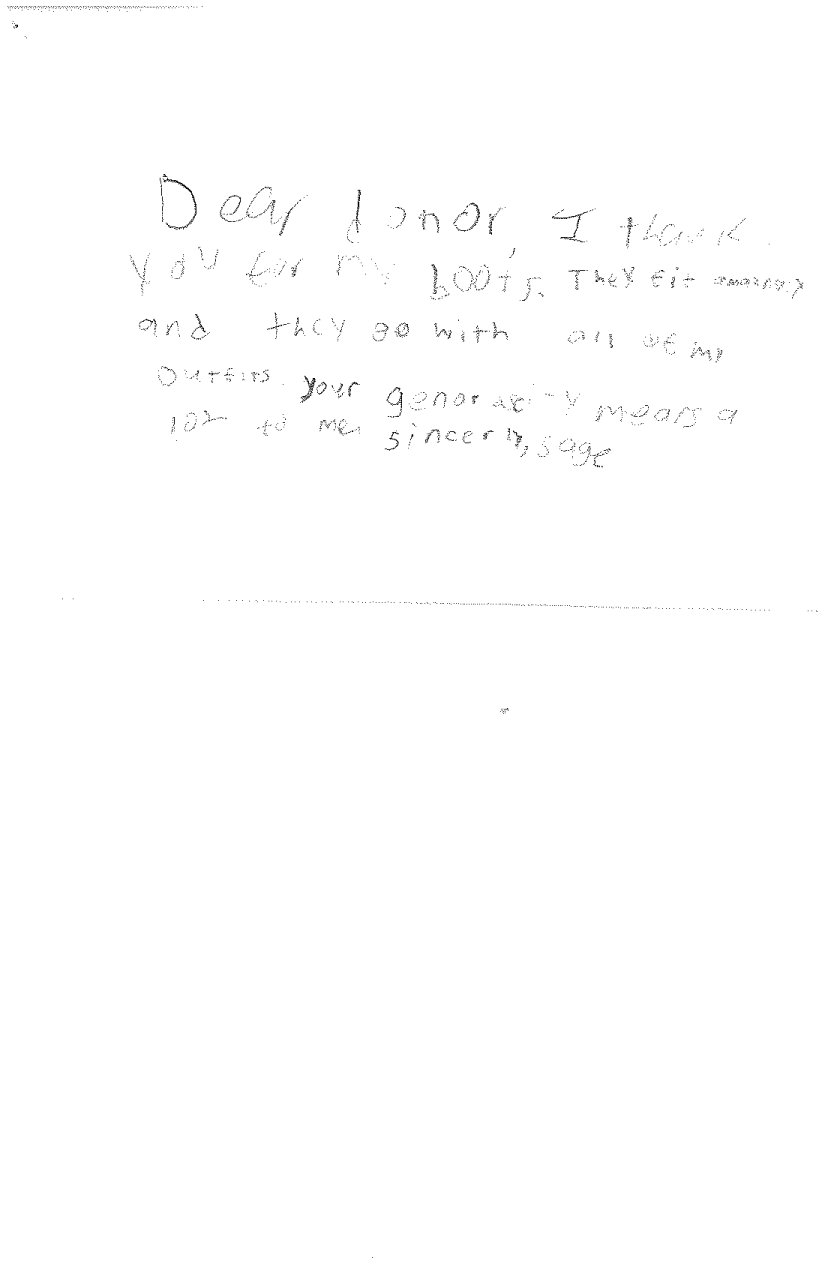 Dear donor, I thank
you for my boots. They fit amazingly
and they go with all of my
outfits. your genoraxity means a
lot to me. sincerly, sage